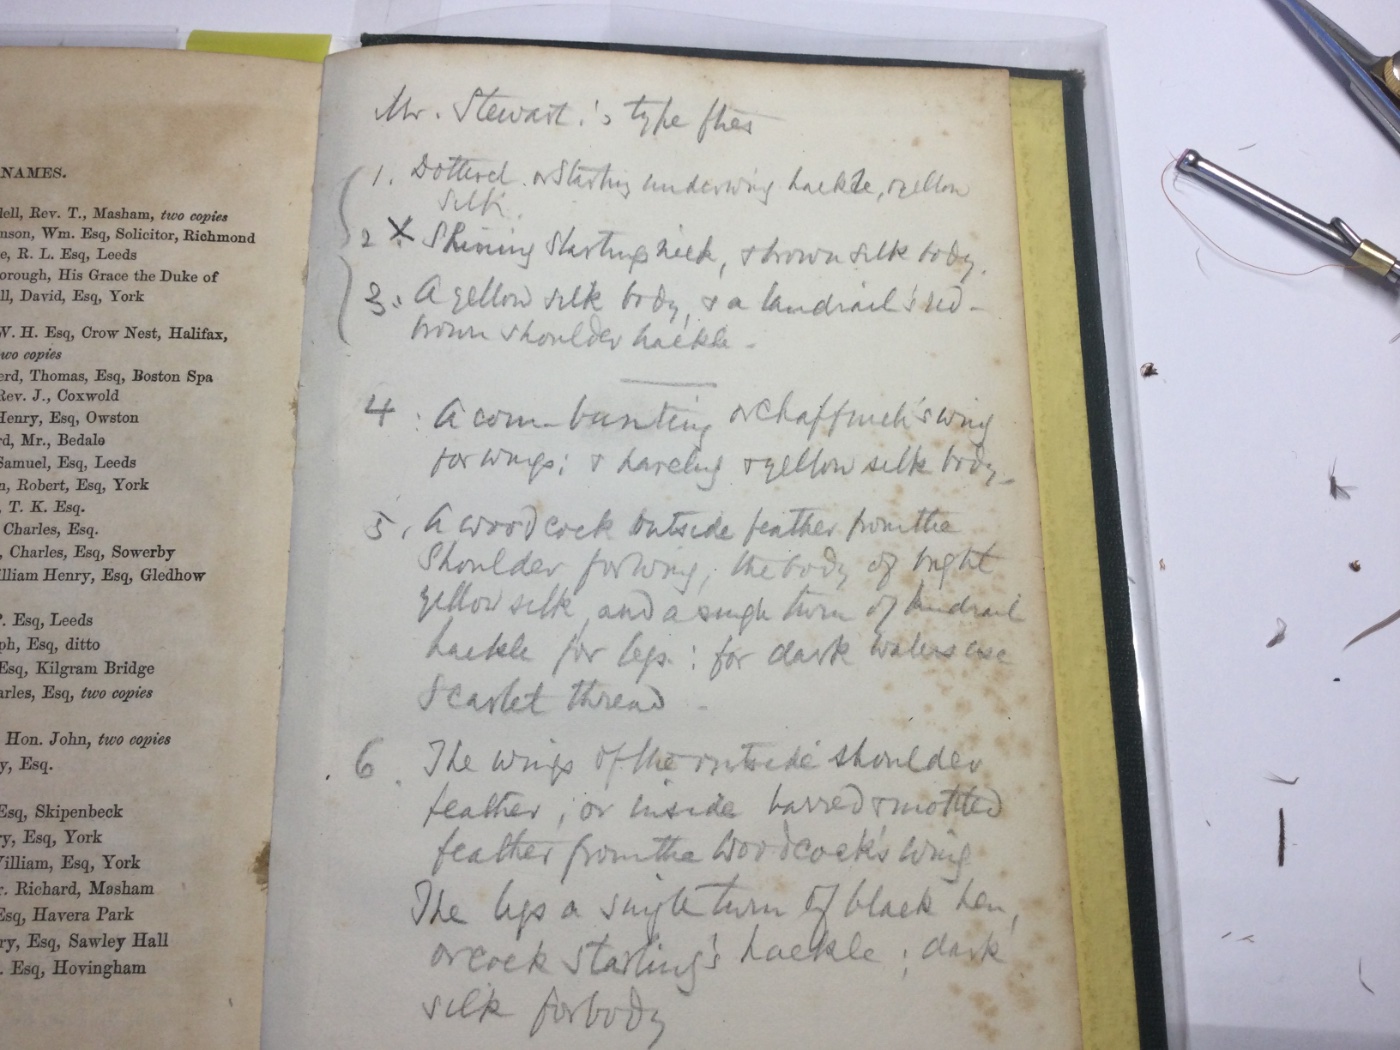 NAMES.
dell, Rev. T., Masham, two copies
nson, Wm. Esq, Solicitor, Richmond
e, R. L. Esq, Leeds
orough, His Grace the Duke of
ll, David, Esq, York
W. H. Esq, Crow Nest, Halifax,
two copies
erd, Thomas, Esq, Boston Spa
Rev. J., Coxwold
Henry, Esq, Owston
rd, Mr., Bedale
Samuel, Esq, Leeds
n, Robert, Esq, York
, T. K. Esq.
Charles, Esq.
, Charles, Esq, Sowerby
illiam Henry, Esq, Gledhow
P. Esq, Leeds
ph, Esq, ditto
Esq, Kilgram Bridge
arles, Esq, two copies
Hon. John, two copies
y, Esq.
Esq, Skipenbeck
ry, Esq, York
William, Esq, York
r. Richard, Masham
Esq, Havera Park
ry, Esq, Sawley Hall
. Esq, Hovingham
Mr. Stewart's type flies
1. Dotterel or Starling underwing hackle, yellow
silk.
2 X. Shining Starling neck, & brown silk body.
3. A yellow silk body, & a landrail's red-
brown shoulder hackle.
4. A corn-bunting or Chaffinch's wing
for wings; & harelug & yellow silk body.
5. A woodcock outside feather from the
Shoulder for wing; the body of bright
yellow silk, and a single turn of landrail
hackle for legs: for dark waters use
Scarlet thread.
6. The wings of the outside shoulder
feather, or inside barred & mottled
feather from the Woodcock's wing
The legs a single turn of black hen,
or cock Starling's hackle; dark
silk for body